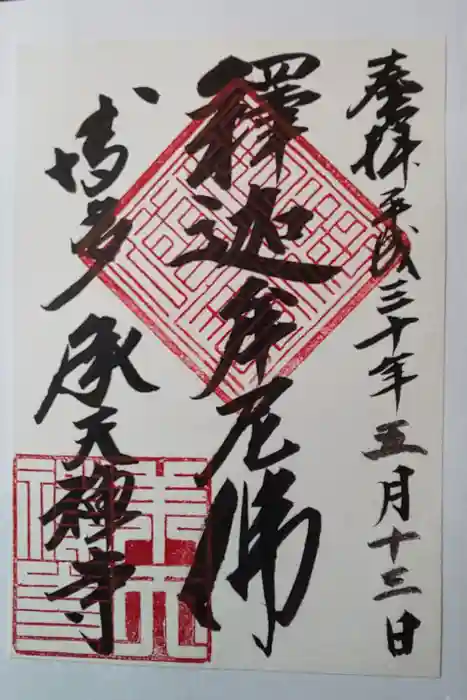 奉拝平成三十年五月十三日
釋迦牟尼佛
博多承天禪寺